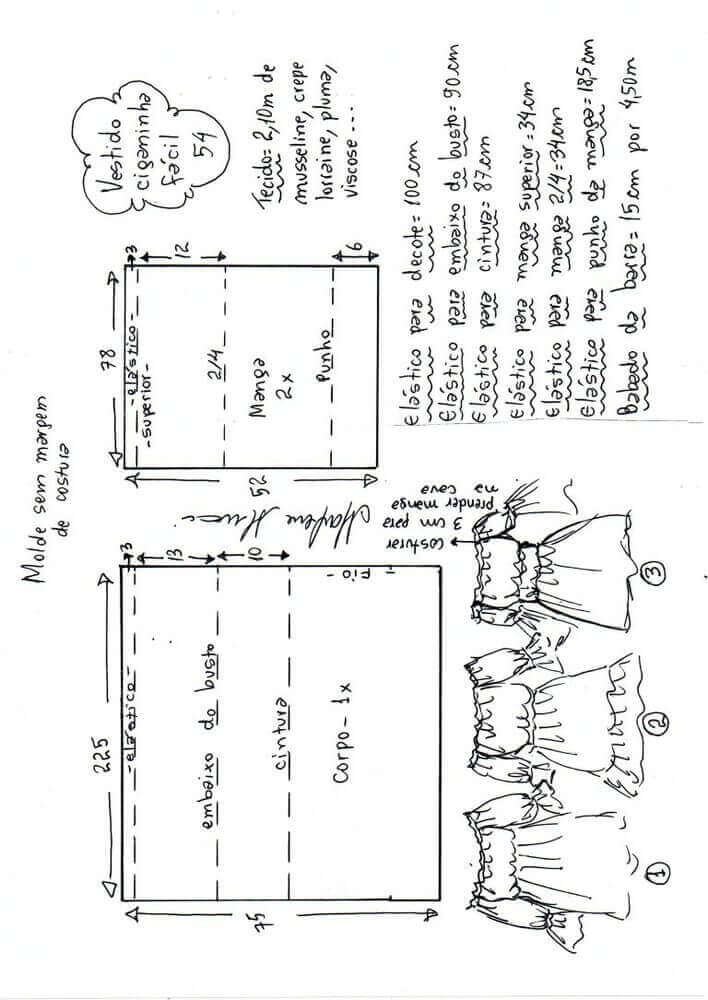 Molde sem margem
de costura
225
3
-elástico-
13
embaixo do busto
10
cintura
Corpo - 1x
Fio-
75
78
3
-elástico-
-superior-
12
2/4
Manga
2x
Punho
6
52
Vestido
ciganinha
fácil
54
Tecido= 2,10m de
musseline, crepe
lorraine, pluma,
viscose...
Elástico para decote= 100cm
Elástico para embaixo do busto= 90cm
Elástico para cintura= 87cm
Elástico para manga superior=34cm
Elástico para manga 2/4=34cm
Elástico para punho da manga=18,5cm
Babado da barra= 15cm por 4,50m
costurar
3 cm para
prender manga
na cava
1
2
3